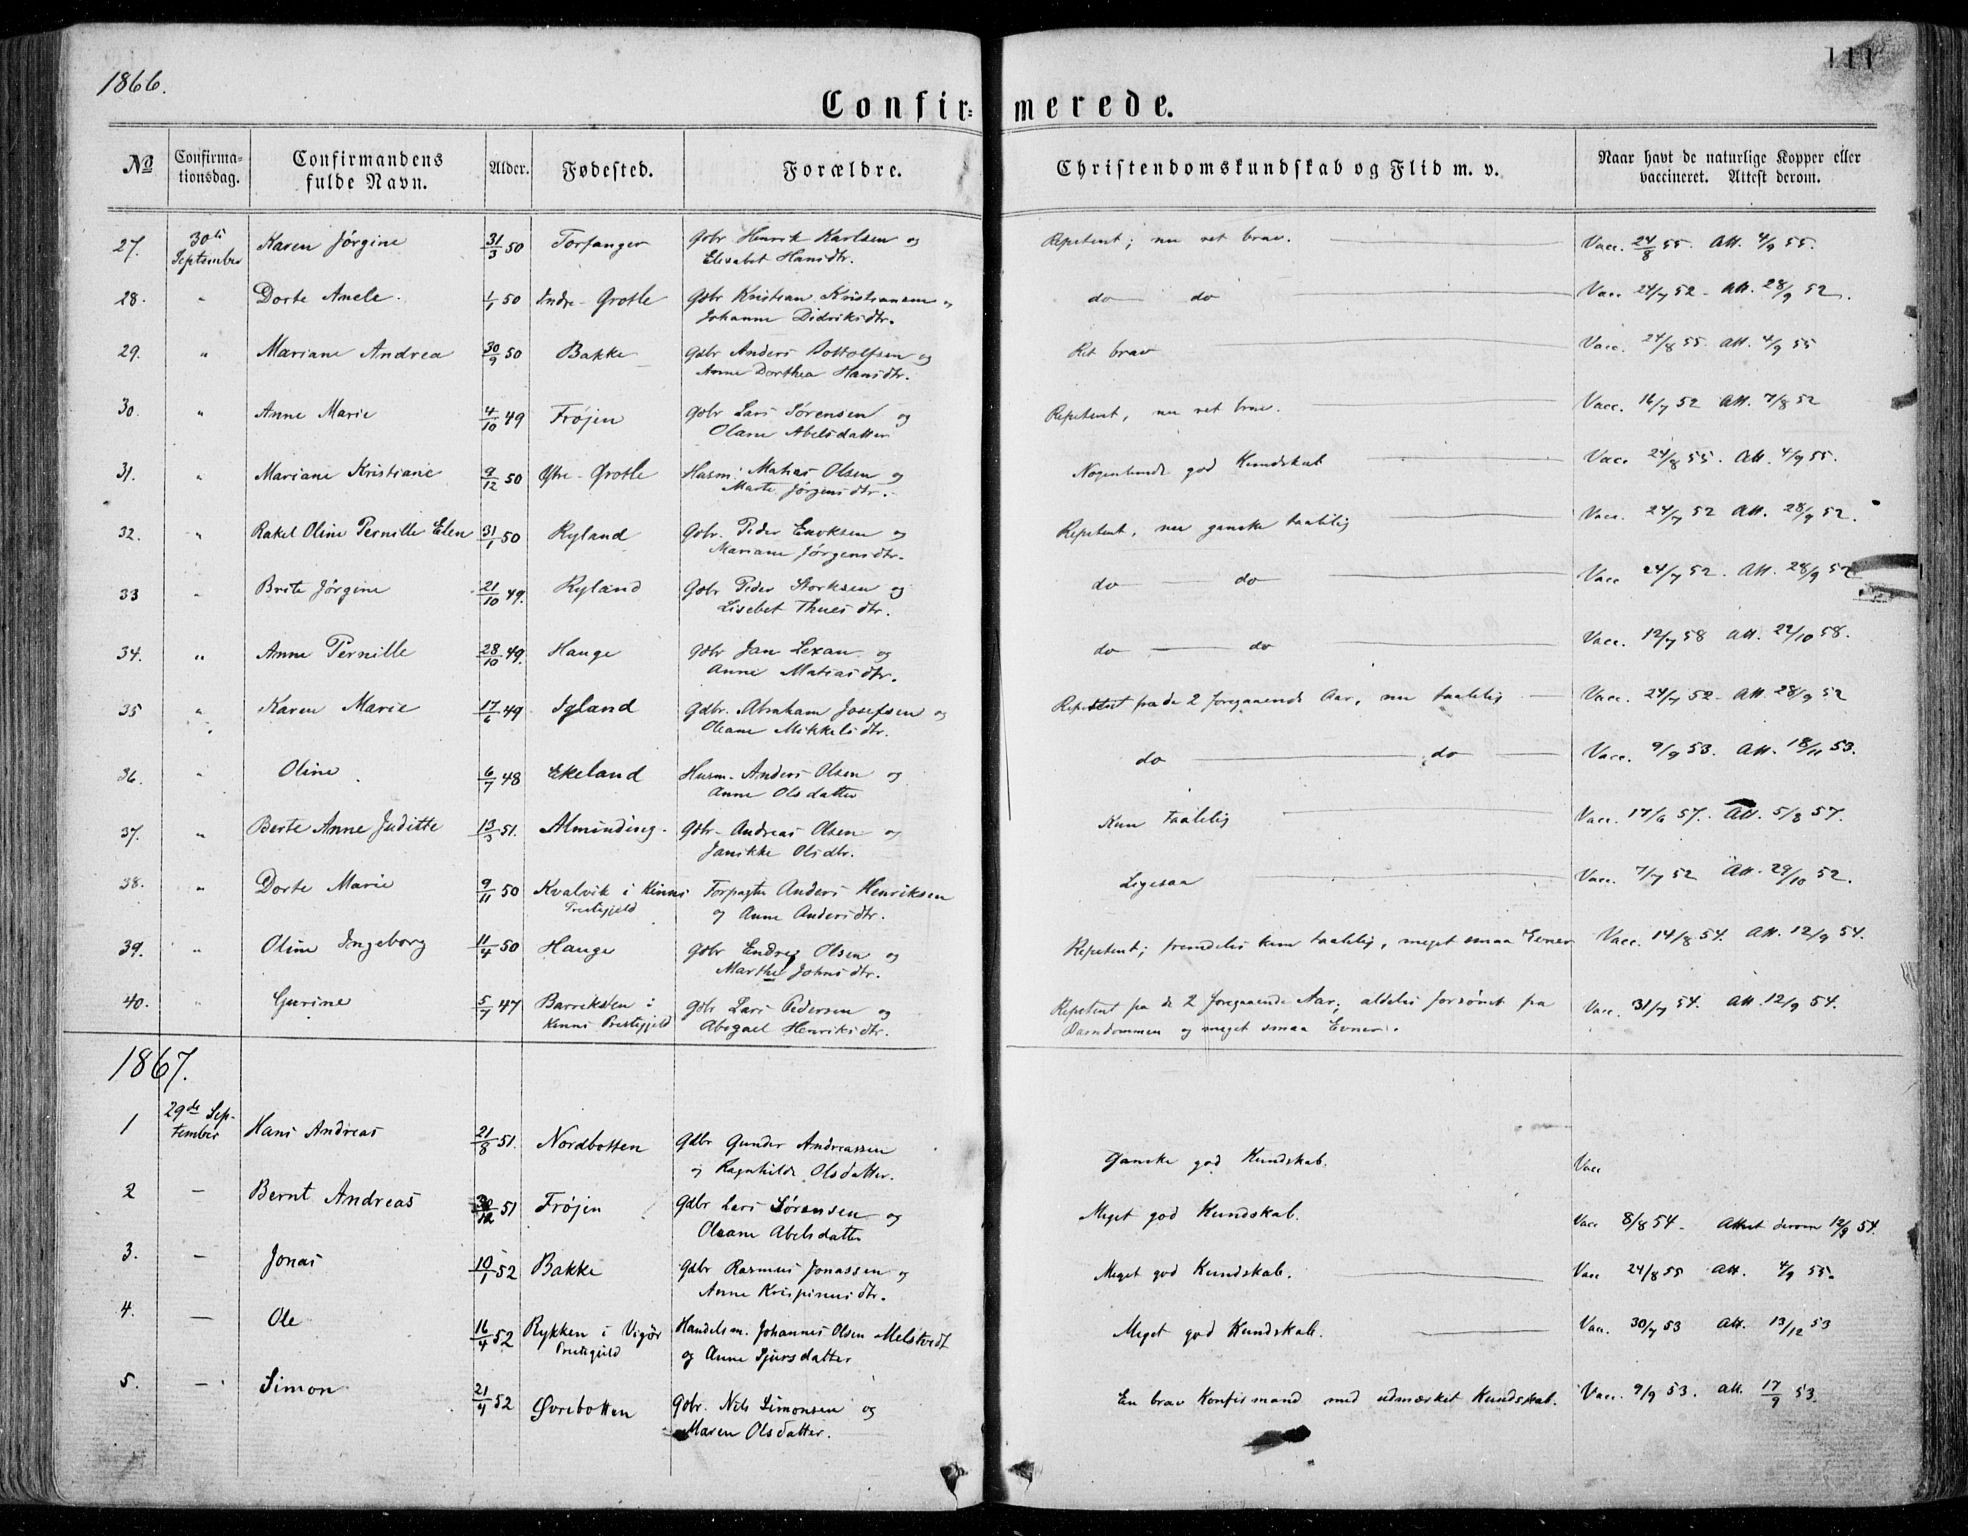 1866.
111
Confir=merede.
No Confirmationsdag. Confirmandens fulde Navn. Alder. Fødested. Forældre. Christendomskundskab og Flid m. v. Naar havt de naturlige Kopper eller vaccineret. Attest derom.
27. 30te September Karen Jørgine 31/3 50 Torfanger Gdbr Henrik Karlsen og Repetent; nu ret brav. Vacc. 24/8 55. Att. 4/9 55.
Elisabet Hansdtr.
28. " Dorte Anele. 1/1 50 Indre-Grotle Gdbr Kristian Kristiansen og do do Vacc 24/7 52 - Att. 28/9 52.
Johanne Didriksdtr.
29. " Mariane Andrea 30/9 50 Bakke Gdbr Anders og Ret brav Vacc. 24/8 55. Att. 4/9 55
Anne Dorthea Hansdtr.
30. " Anne Marie 4/10 49 Frøjen Gdbr Lars Sørensen og Repetent, nu ret brav. Vacc. 16/7 52 Att. 7/8 52
Oleane Abelsdatter
31. " Mariane Kristiane 9/12 50 Ytre-Grotle Husm. Matias Olsen og Nogenlunde god Kundskab Vacc 24/8 55. Att. 4/9 55.
Marte Jørgensdtr.
32. " Rakel Oline Pernille Elen 31/1 50 Ryland Gdbr. Peder Enoksen og Repetent, nu ganske taalelig Vacc. 24/7 52 Att. 28/9 52.
Mariane Jørgensdtr.
33 " Brite Jørgine 21/10 49. Ryland Gdbr Peder Storksen og do do Vacc 24/7 52. Att. 28/9 52
Lisebet Thuesdtr.
34. " Anne Pernille 28/10 49. Hauge Gdbr Jan Lexau og do do Vacc. 12/7 58 Att. 22/10 58.
Anne Matiasdtr.
35 " Karen Marie 17/6 49 Igland Gdbr. Abraham Josefsen og Repetent fra de 2 foregaaende Aar, nu taalelig Vacc. 24/7 52 - Att. 28/9 52
Oleane Mikkelsdtr.
36. " Oline 6/7 48 Ekeland Husm. Anders Olsen og do do Vacc. 9/9 53. Att. 18/11 53.
Anne Olsdatter
37. " Berte Anne Juditte 13/3 51. Alminding. Gdbr. Andreas Olsen og Kun taalelig Vacc. 17/6 57. Att. 5/8 57.
Janikke Olsdtr.
38. " Dorte Marie 9/11 50 Kvalvik i Kinns Torpagter Anders Henriksen Ligesaa Vacc. 7/7 52 Att. 29/10 52.
Prestegjeld og Anne Andersdtr.
39. " Oline Ingeborg 11/4 50 Hauge Gdbr Endre Olsen og Repetent; fremdeles kun taalelig, meget smaa Evner Vacc. 14/8 54. Att. 12/9 54.
Marthe Johnsdtr.
40. " Gurine 5/7 47 Barrikden i Gdbr Lars Pedersen og Repetent fra de 2 foregaaende Aar; aldeles forsømt fra Vacc. 31/7 54. Att. 12/9 54.
Kinns Prestegjeld Abegael Henriksdtr. Barndommen og meget smaa Evner.
1867.
1 29de September Hans Andreas 21/8 51. Nordbotten Gdbr Gunder Andreassen Ganske god Kundskab. Vacc
og Ragnhilde Olsdatter.
2 — Bernt Andreas 30/12 51 Frøjen Gdbr Lars Sørensen og Meget god Kundskab. Vacc 8/8 54 - Attest derom 12/9 54.
Oleane Abelsdatter
3. — Jonas 10/1 52 Bakke Gdbr Rasmus Jonassen og Meget god Kundskab. Vacc 24/8 55 Att. 4/9 55.
Anne Krispinusdtr.
4. — Ole 16/4 52 Rykken i Vigør Handelsm. Johannes Olsen Melstvedt Meget god Kundskab. Vacc. 30/7 53 Att. 13/12 53
Prestegjeld og Anne Sjursdatter
5. — Simon 21/4 52 Øvrebotten Gdbr. Nils Simonsen og En brav Konfirmand med udmærket Kundskab. Vacc. 9/9 53. Att. 17/9 53.
Maren Olsdatter.